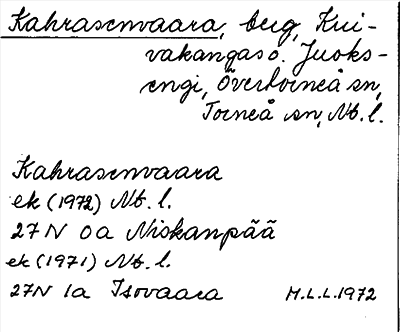 Kahrasenvaara, berg, Kui-
vakangas o. Juoks-
engi, Övertorneå sn,
Torneå sn, Nb. l.
Kahrasenvaara
ek (1972) Nb. l.
27 N 0a Niskanpää
ek (1971) Nb. l.
27N 1a Isovaara M.L.L. 1972